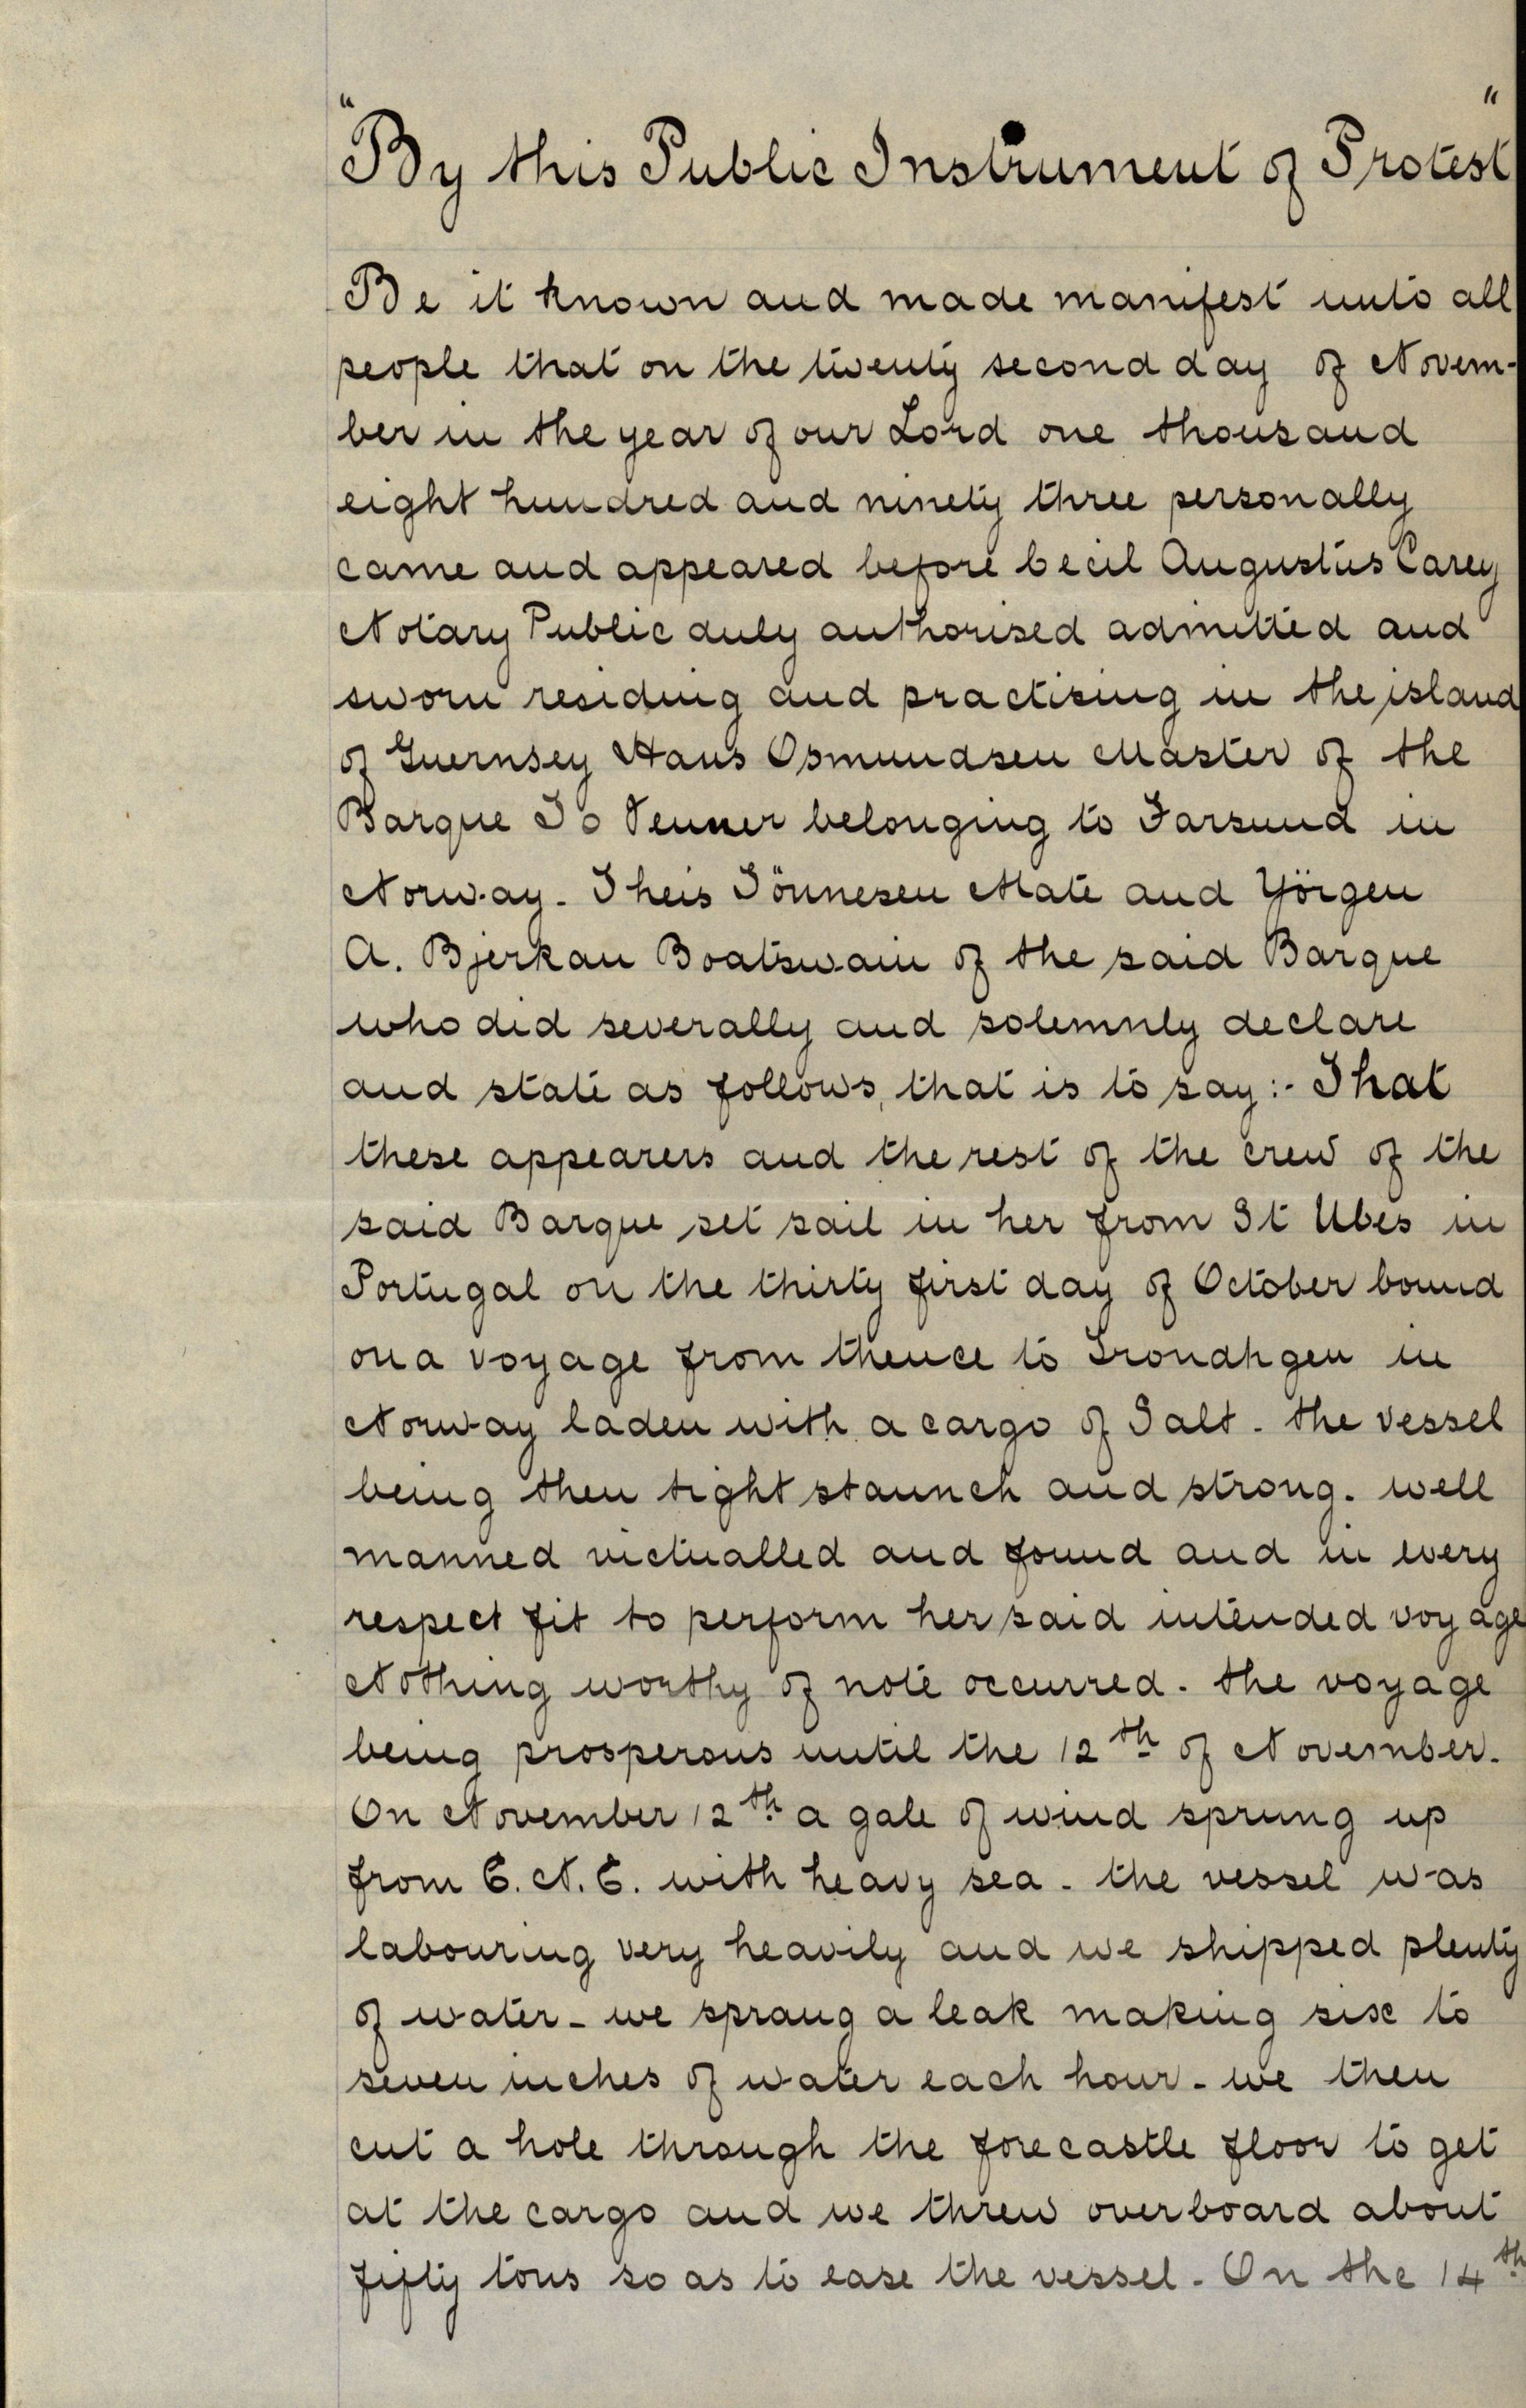 "By this Public Instrument of Protest"
Be it known and made manifest unto all
people that on the twenty second day of Novem-
ber in the year of our Lord one thousand
eight hundred and ninety three personally
came and appeared before Cecil Augustus Carey
Notary Public duly authorised admitted and
sworn residing and practising in the island
of Guernsey Hans Osmundsen Master of the
Barque To Venner belonging to Farsund in
Norway - Theis Tönnesen Mate and Yörgen
A. Bjerkan Boatswain of the said Barque
who did severally and solemnly declare
and state as follows, that is to say :- That
these appearers and the rest of the crew of the
said Barque set sail in her from St Ubes in
Portugal on the thirty first day of October bound
on a voyage from thence to Trondhgen in
Norway laden with a cargo of Salt - the vessel
being then tight staunch and strong. well
manned victualled and found and in every
respect fit to perform her said intended voyage
Nothing worthy of note occurred - the voyage
being prosperous until the 12th of November.
On November 12th a gale of wind sprung up
from E. N. E. with heavy sea - the vessel was
labouring very heavily and we shipped plenty
of water - we sprang a leak making six to
seven inches of water each hour - we then
cut a hole through the forecastle floor to get
at the cargo and we threw overboard about
fifty tons so as to ease the vessel - On the 14th